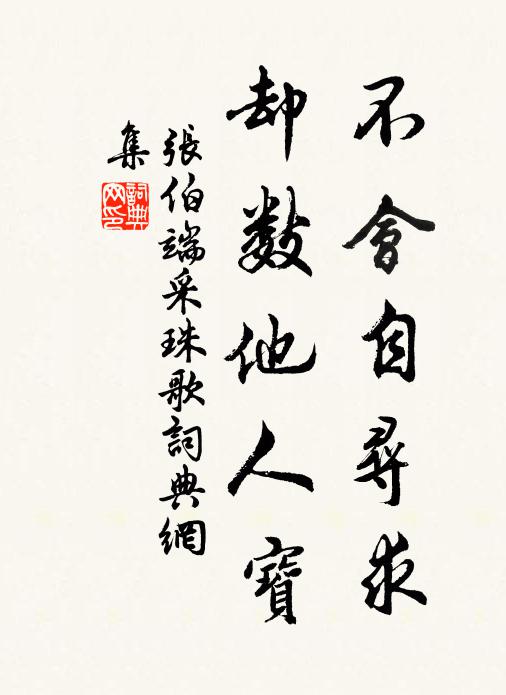 不會自尋求
却數他人寶
張伯端采珠歌詞典網
集
詞典
网印